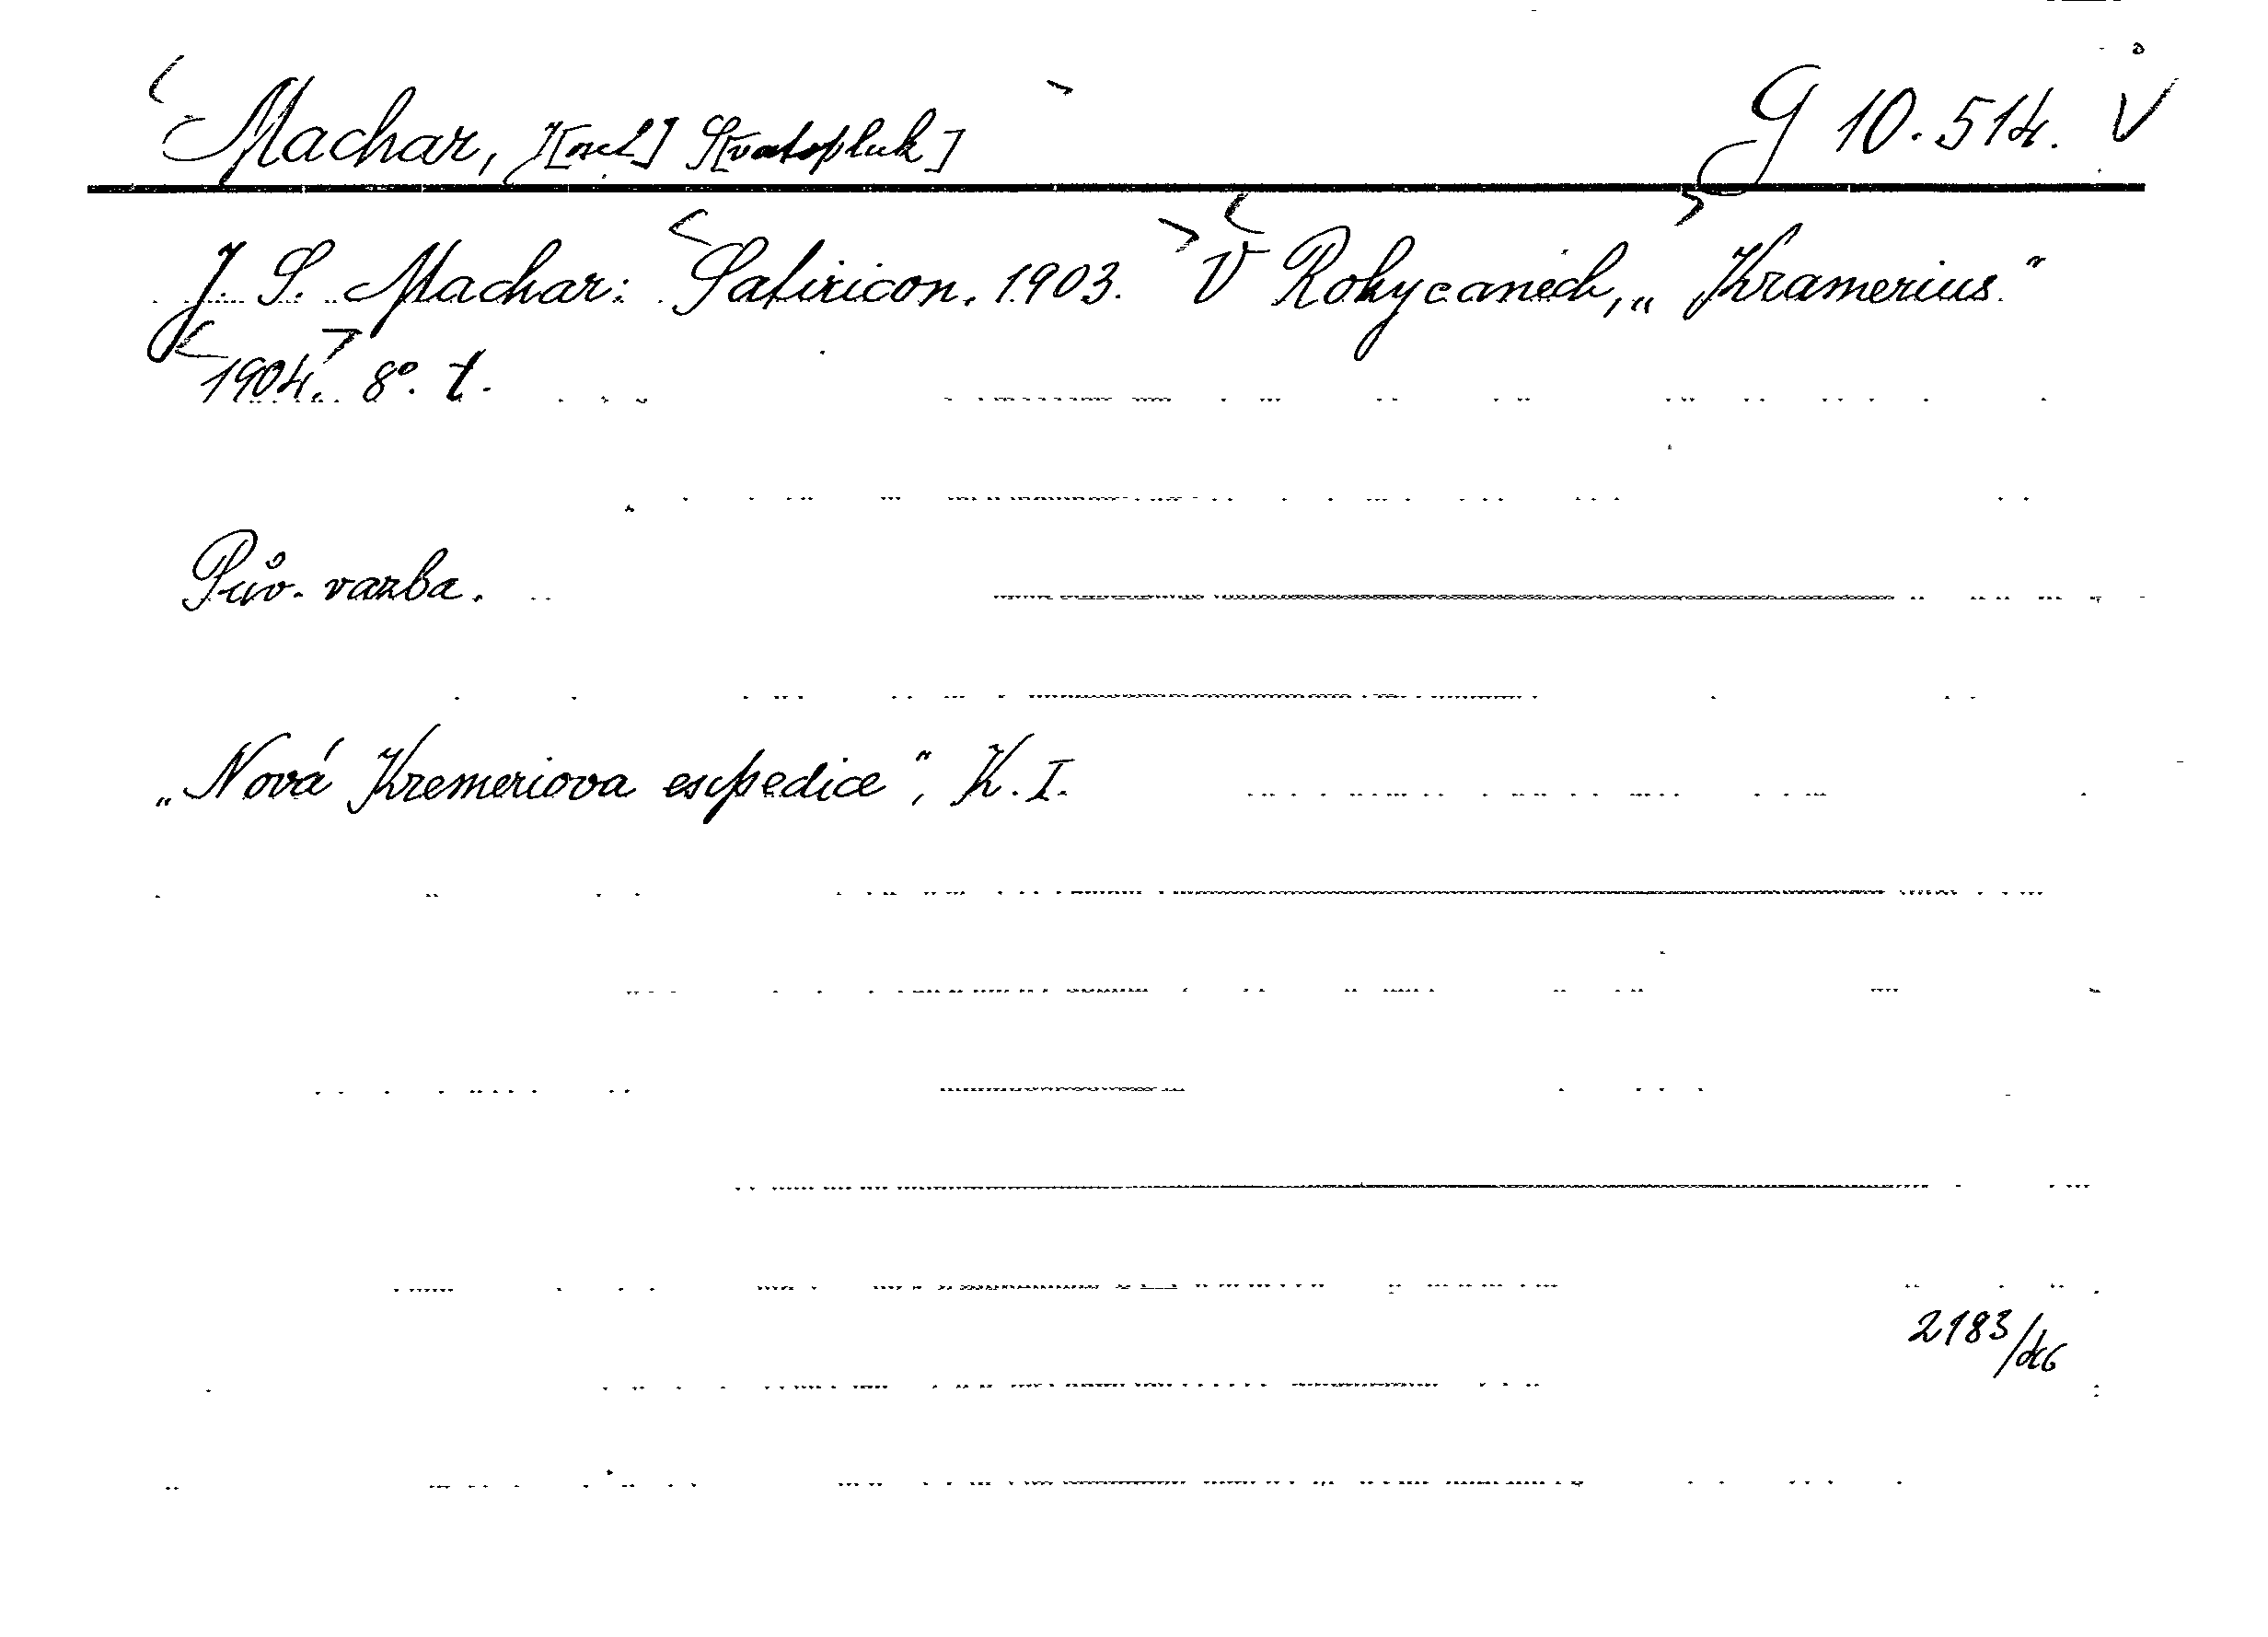 Machar, J[osef] S[vatopluk] G 10.514. V
J. S. Machar: Satiricon. 1903. V Rokycanech, „Kramerius."
1904. 8°. t.
Pův. vazba.
„Nová Krameriova expedice", K. I.
2183/